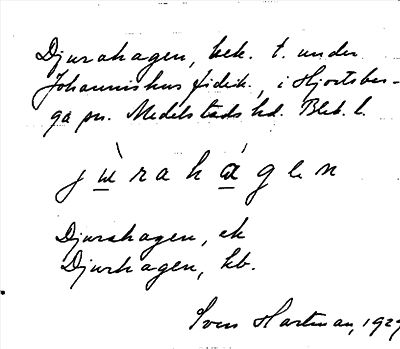 Djurahagen, bek. t. under
Johannishus fideik., i Hjortsber-
ga sn. Medelstads hd. Blek. l.
jùrahágen
Djurahagen, ek
Djurhagen, kb.
Sven Hartman, 1927